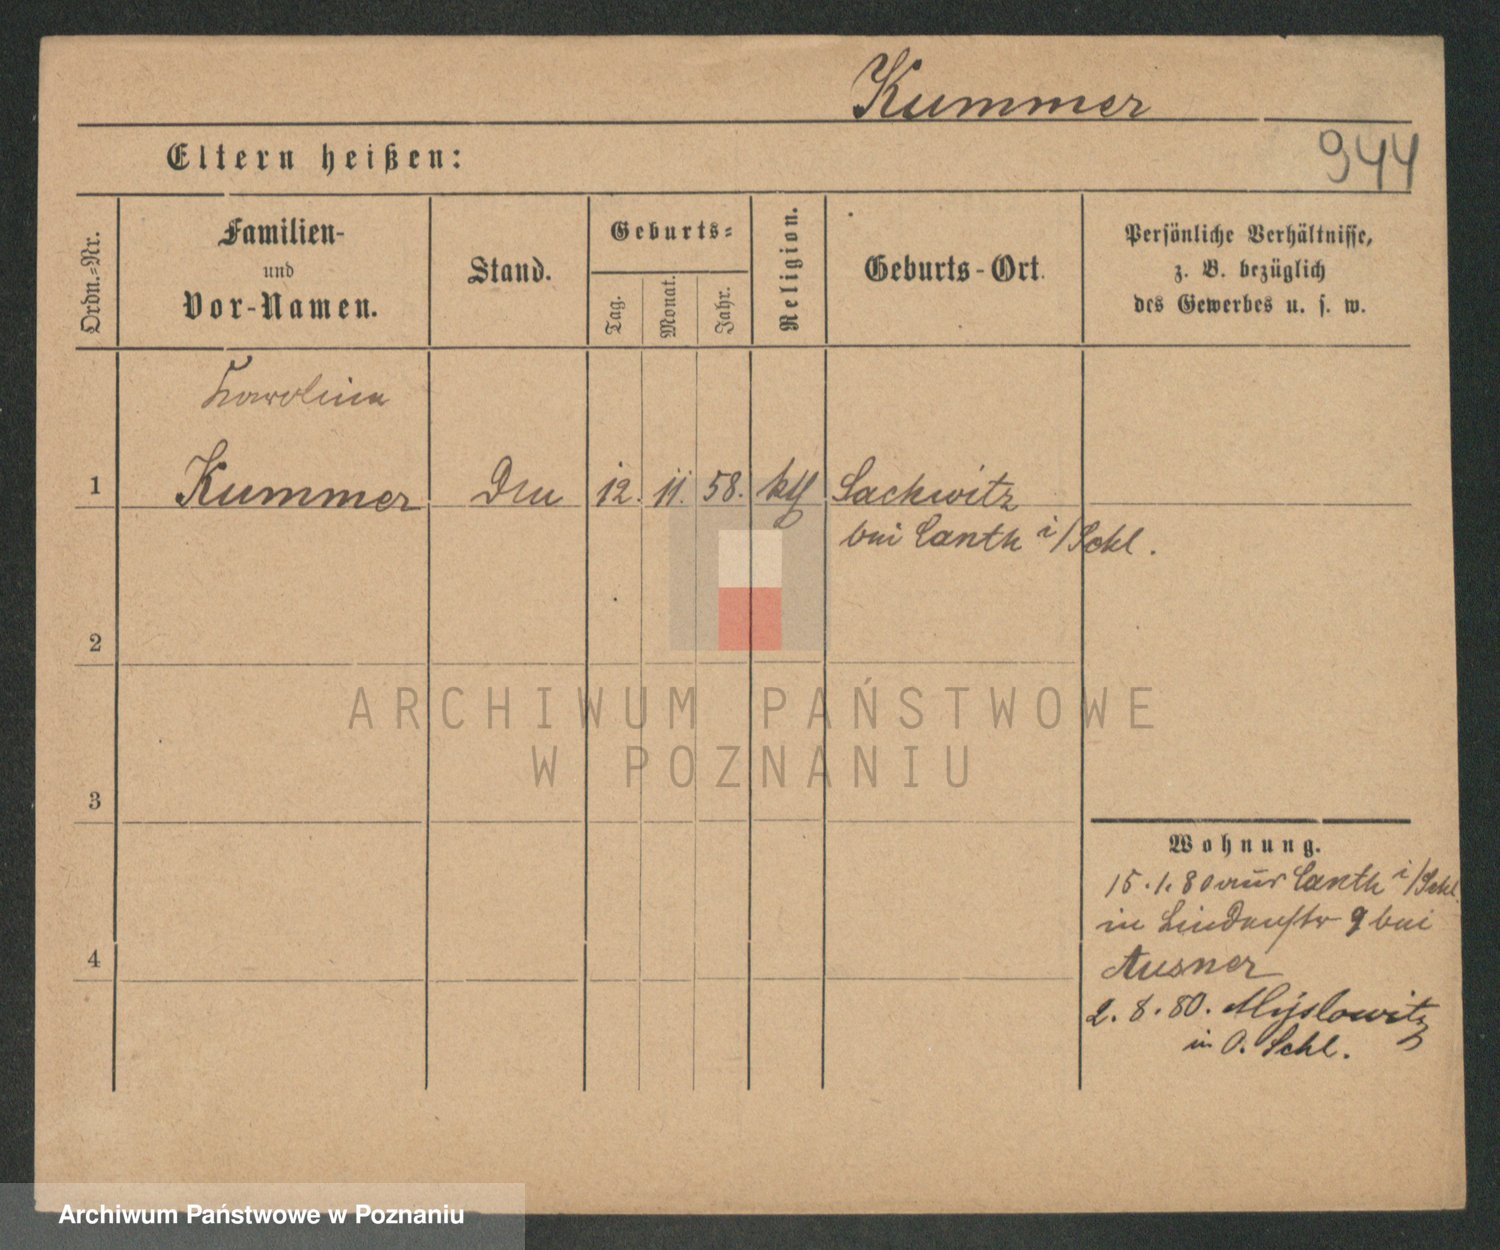 Kummer
Eltern heißen:
944
Ordn.=Nr.
Familien-
und
Vor-Namen.
Stand.
Geburts=
Tag.
Monat.
Jahr.
Religion.
Geburts-Ort.
Persönliche Verhältnisse,
z. B. bezüglich
des Gewerbes u. s. w.
Karolina
1 Kummer 12. 11. 58. kth Sackwitz
bei Canth i/Schl.
2
3
4
Wohnung.
15.1.80 aus Canth i/Schl.
in Lindenstr 9 bei
Ausner
2.8.80. Myslowitz
in O. Schl.
ARCHIWUM PAŃSTWOWE
W POZNANIU
Archiwum Państwowe w Poznaniu